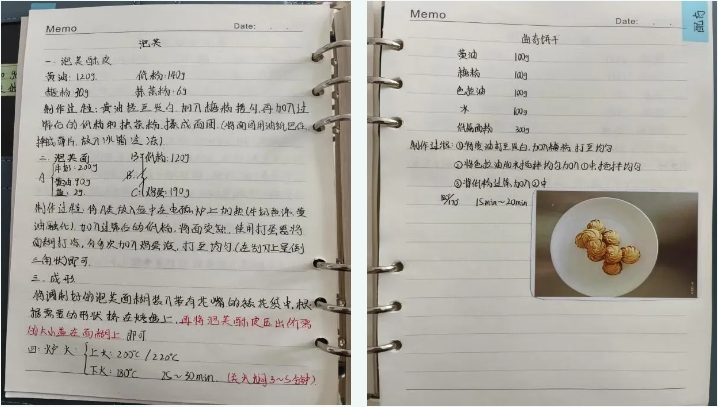 Memo
Date:
泡芙
一. 泡芙酥皮
黄油: 120g 低粉: 140g
糖粉 90g 抹茶粉: 6g
制作过程: 黄油轻至发白, 加入糖粉搅匀, 再加入过
筛后的低粉和抹茶粉, 揉成面团. (将面团用油纸包住
擀成薄片, 放入冰箱冷冻)
二. 泡芙面 B: 低粉: 120g
A 牛奶: 200g
黄油 90g
盐: 2g. C: 鸡蛋: 190g
制作过程: 将A类放入盆中在电磁炉上加热(牛奶煮沸, 黄
油融化), 加入过筛后的低粉, 使用打蛋器将
面糊打冷, 分多次加入鸡蛋液, 打至均匀(在刮刀上呈倒
三角状)即可.
三. 成形
将调制好的泡芙面糊装入带有花嘴的裱花袋中, 根
据需要的形状挤在烤盘上, 再将泡芙酥皮压出所需
的大小盖在面糊上 即可
四: 炉火: 上火: 200℃/220℃
下火: 180℃ 25~30min. (关火焖3~5分钟)
Memo
Date:
曲奇饼干
黄油 100g
糖粉 100g
色拉油 100g
水 100g
低筋面粉 300g
制作过程: ①将黄油打至发白, 加入糖粉, 打至均匀
②将色拉油和水搅拌均匀加入①中搅拌均匀
③将低粉过筛, 加入②中
15min~20min